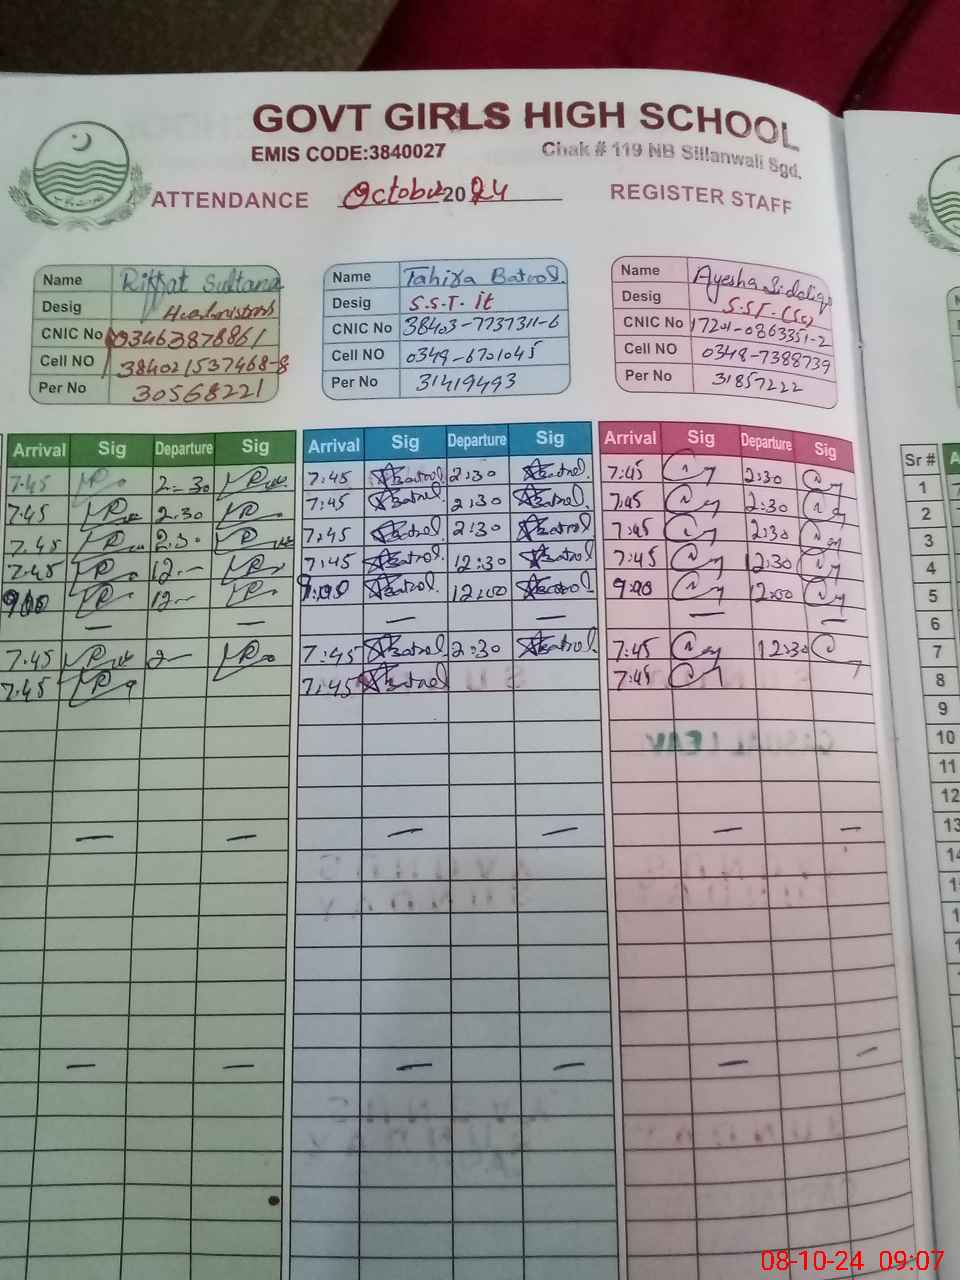 GOVT GIRLS HIGH SCHOOL
EMIS CODE:3840027
Chak # 119 NB Sillanwali Sgd.
ATTENDANCE October 2024 REGISTER STAFF
Name Riffat Sultana
Desig Headmistress
CNIC No 03463878861
Cell NO 384021537468-8
Per No 30568221
Name Tahira Batool.
Desig S.S.T. it
CNIC No 38403-7737311-6
Cell NO 0349-6701045
Per No 31419493
Name Ayesha Siddiqa
Desig S.ST.(Sc)
CNIC No 17201-0863351-2
Cell NO 0348-7388739
Per No 31857222
Arrival Sig Departure Sig Arrival Sig Departure Sig Arrival Sig Departure Sig Sr #
7:45 2-30 7:45 Batool 2:30 Batool. 7:45 2:30 1
7:45 2.30 7:45 Batool. 2:30 Batool. 7:45 2:30 2
7.45 2.30 7:45 Batool. 2:30 Batool. 7:45 2:30 3
7:45 12.— 7:45 Batool. 12:30 Batool. 7:45 12:30 4
900 12— 9:00 Batool. 12:00 Batool 9:00 12:00 5
— — — — — — 6
7.45 2— 7:45 Batool. 2:30 Batool. 7:45 12:30 7
7.45 7:45 Batool 7:45 8
9
10
11
12
— — — — — — 13
14
— — — — — —
08-10-24 09:07